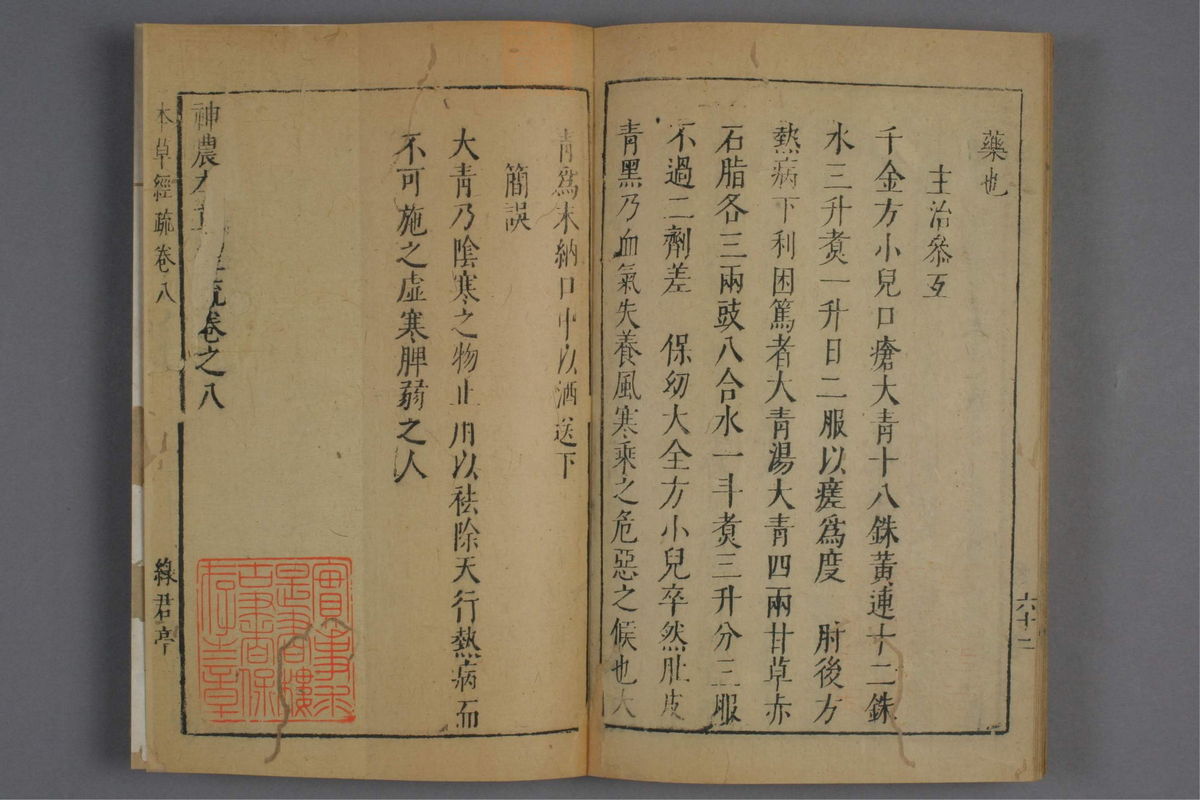 藥也
主治參互
千金方小兒口瘡大青十八銖黃連十二銖
水三升煑一升日二服以瘥爲度　肘後方
熱病下利困篤者大青湯大青四兩甘草赤
石脂各三兩豉八合水一斗煑三升分三服
不過二劑差　保幼大全方小兒卒然肚皮
青黑乃血氣失養風寒乘之危惡之候也大
六十二
青爲末納口中以酒送下
簡誤
大青乃陰寒之物止用以祛除天行熱病而
不可施之虛寒脾弱之人
神農本草經疏卷之八
本草經疏卷八
綠君亭